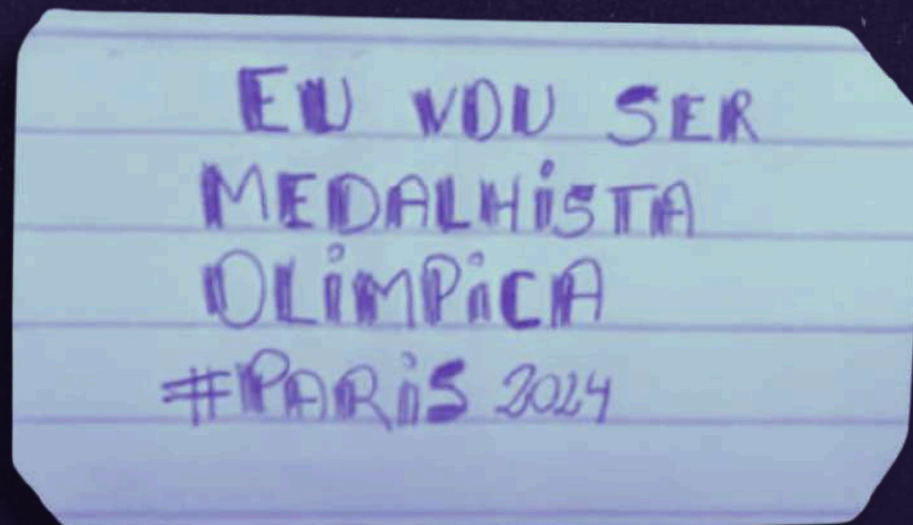 EU VOU SER
MEDALHiSTA
OLiMPiCA
#PARiS 2024